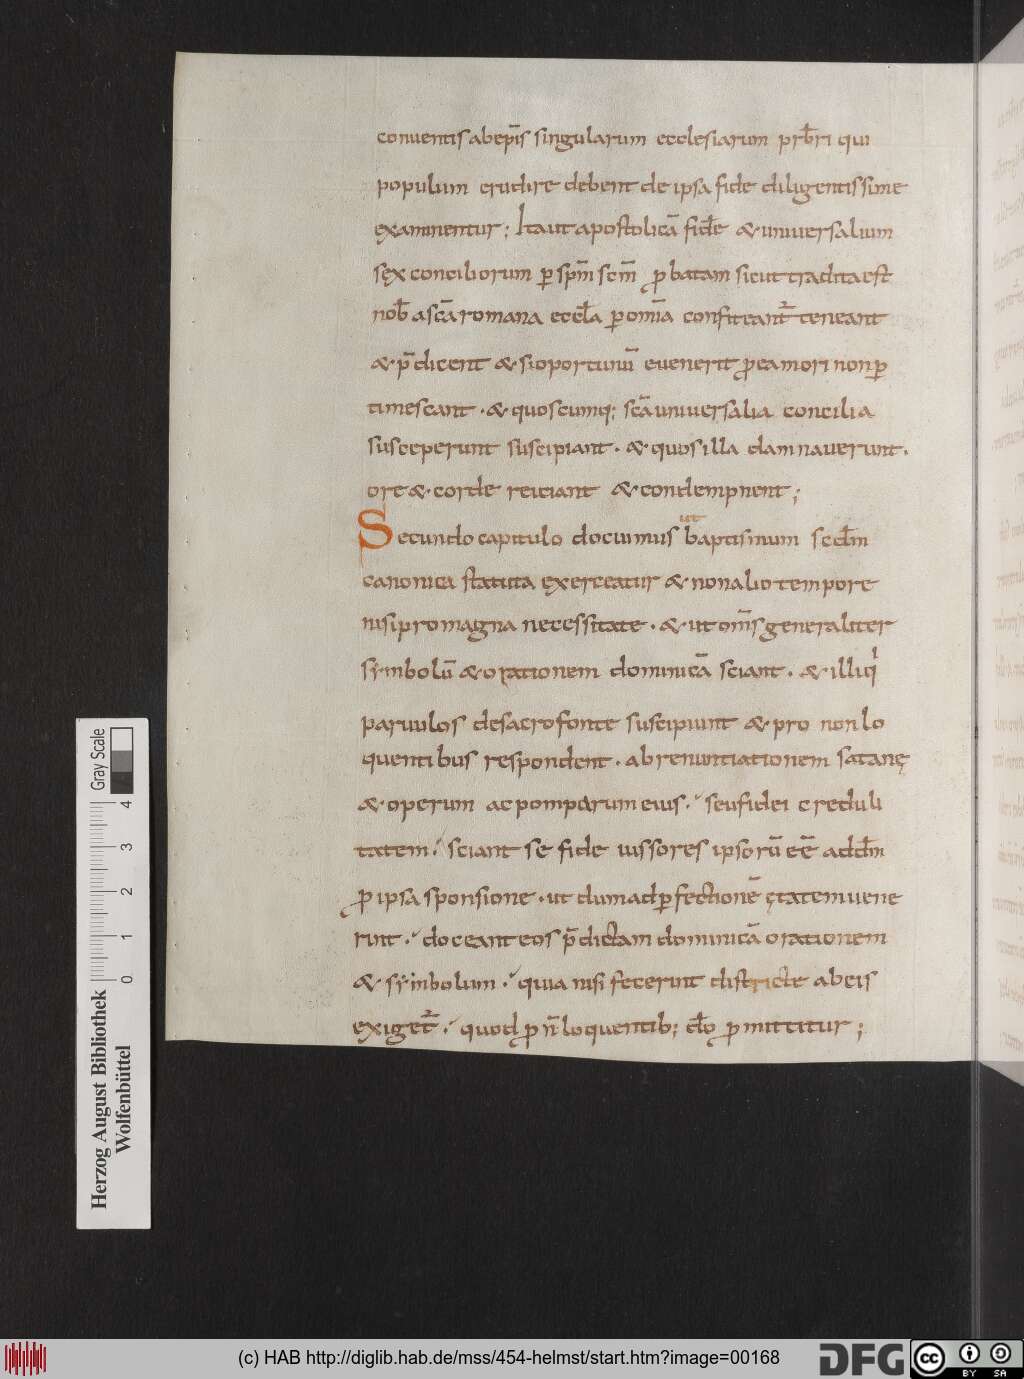 conuentis ab ep̄is singularum ecclesiarum prb̄ri qui
populum erudire debent de ipsa fide diligentissime
examinentur; Ita ut apostolicā fidē & uniuersalium
sęx conciliorum ꝑ sp̄m sc̄m ꝓbatam sicut tradita est
nob̄ a sc̄a romana eccl̄a ꝑ om̄ia confiteant᷑ teneant
& p̄dicent & si oportunū euenerit ꝓ ea mori non ꝑ
timescant · & quoscumq; sc̄a uniuersalia concilia
susceperunt suscipiant · & quos illa damnauerunt ·
ore & corde reiciant & condempnent ;
ut
Secundo capitulo docuimus baptismum secdm̄
canonica statuta exerceatur & non alio tempore
nisi pro magna necessitate · & ut om̄s generaliter
sẏmbolū & orationem dominicā sciant · & illi qi
paruulos de sacro fonte suscipiunt & pro non lo
quentibus respondent · abrenuntiationem satanę
& operum ac pomparum eius · seu fidei creduli
tatem · sciant se fide iussores ipsorū eē ad dm̄
ꝓ ipsa sponsione · ut dum ad ꝑfectionē ętatem uene
runt · doceant eos p̄dictam dominicā orationem
& sẏmbolum · quia nisi fecerint districte ab eis
exiget᷑ · quod ꝓ n̄ loquentib; do̅ ꝓmittitur ;
Gray Scale
0 1 2 3 4
Herzog August Bibliothek
Wolfenbüttel
(c) HAB http://diglib.hab.de/mss/454-helmst/start.htm?image=00168
DFG
cc BY SA